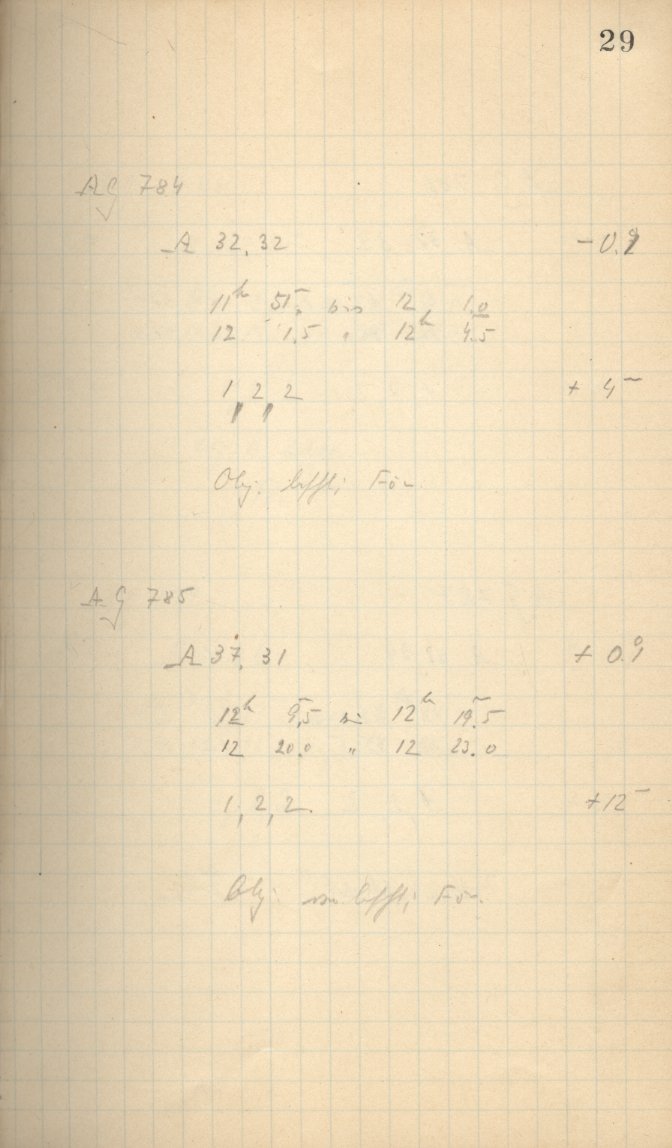 29
AG 784
A 32, 32 -0.
11h 51m. bis 12 1.0
12 1.5 " 12h 4.5
1, 2, 2 + 4m
Obj.
AG 785
A 37, 31 + 0.°1
12h 9m,5 bis 12h 19m.5
12 20.0 " 12 23.0
1, 2, 2 +12m
Obj.